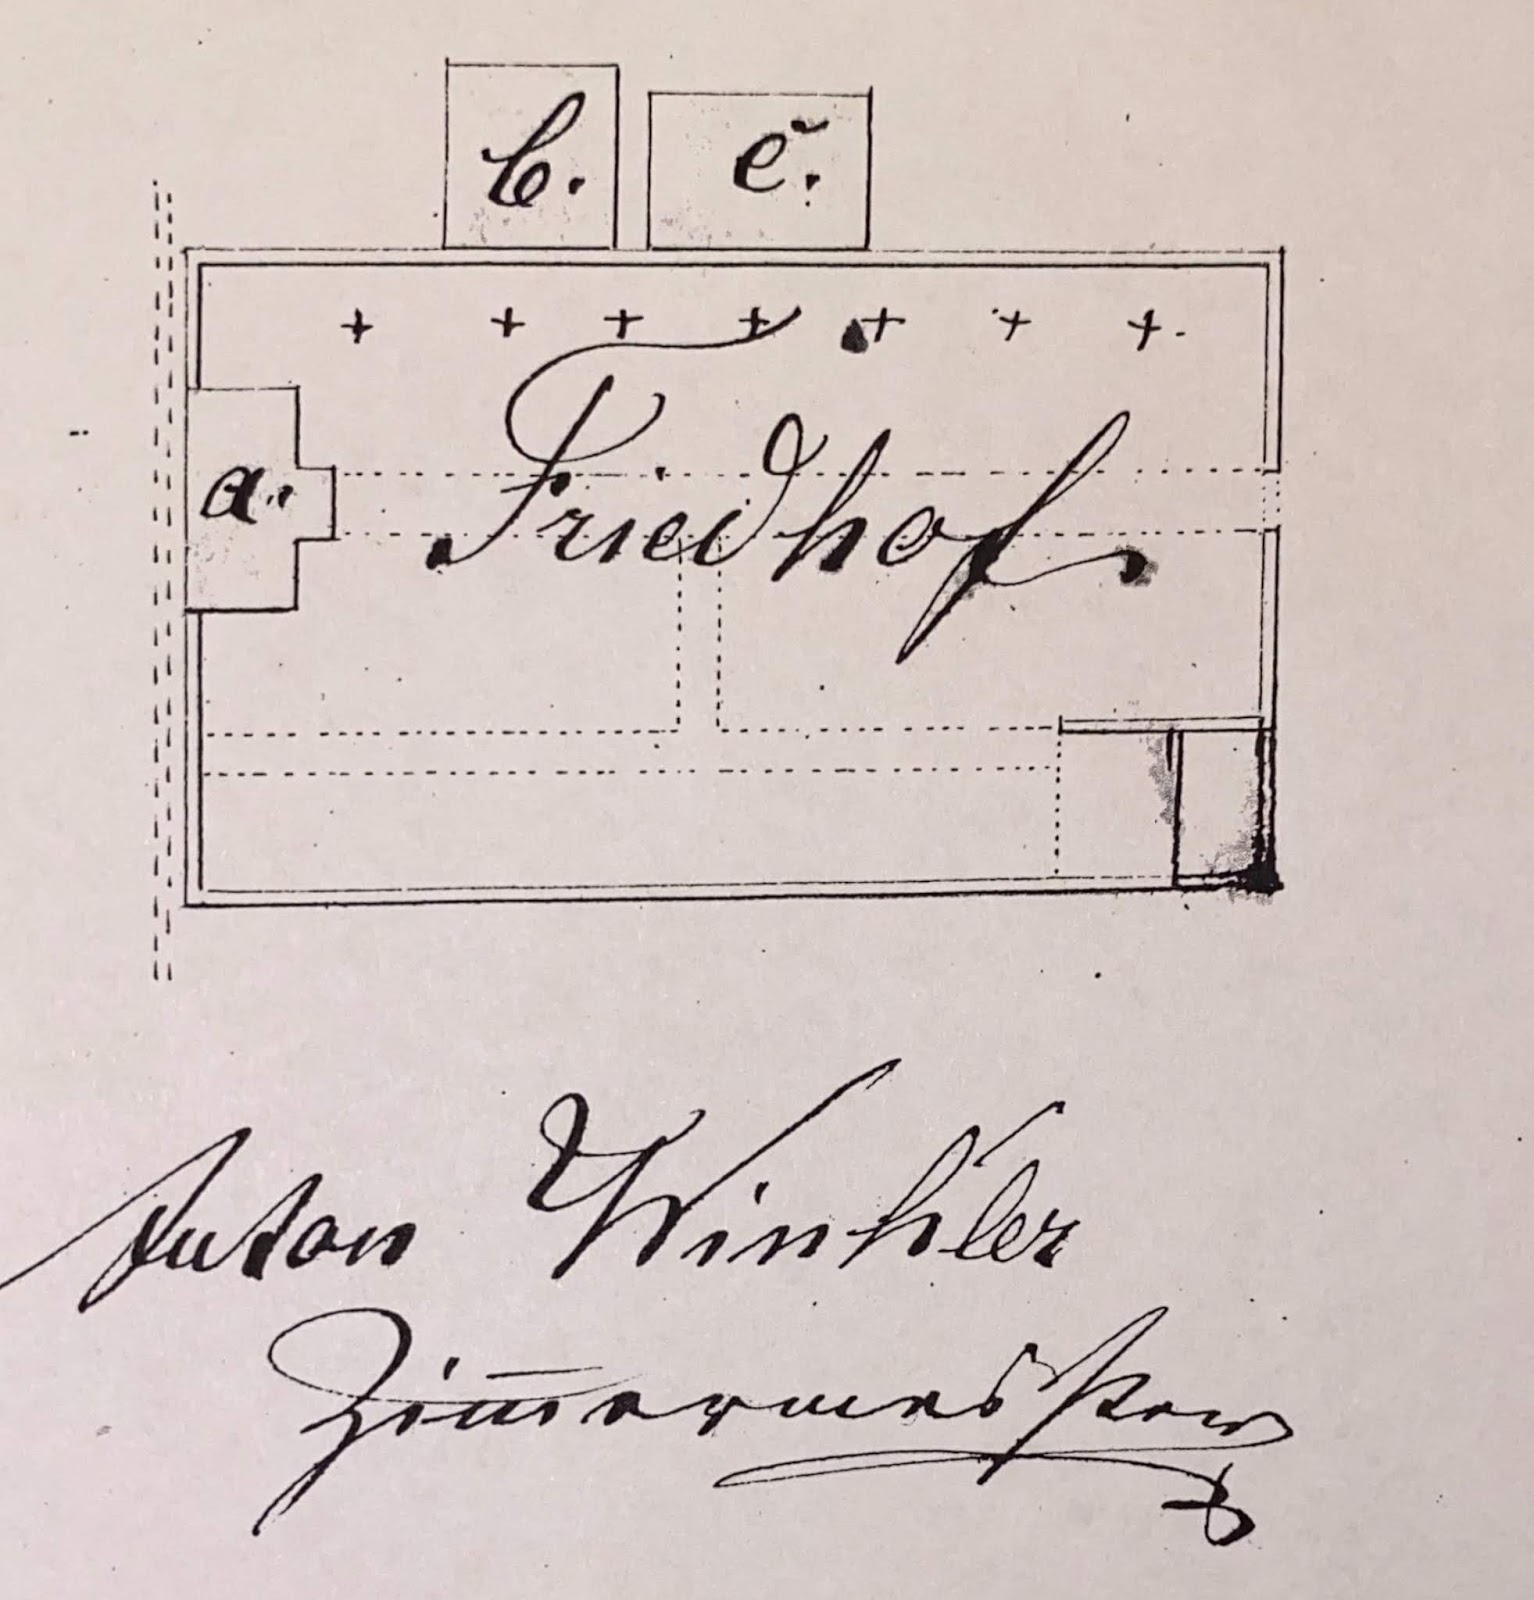 b. c.
a.
Friedhof
Anton Winkler
Zim̅ermeister